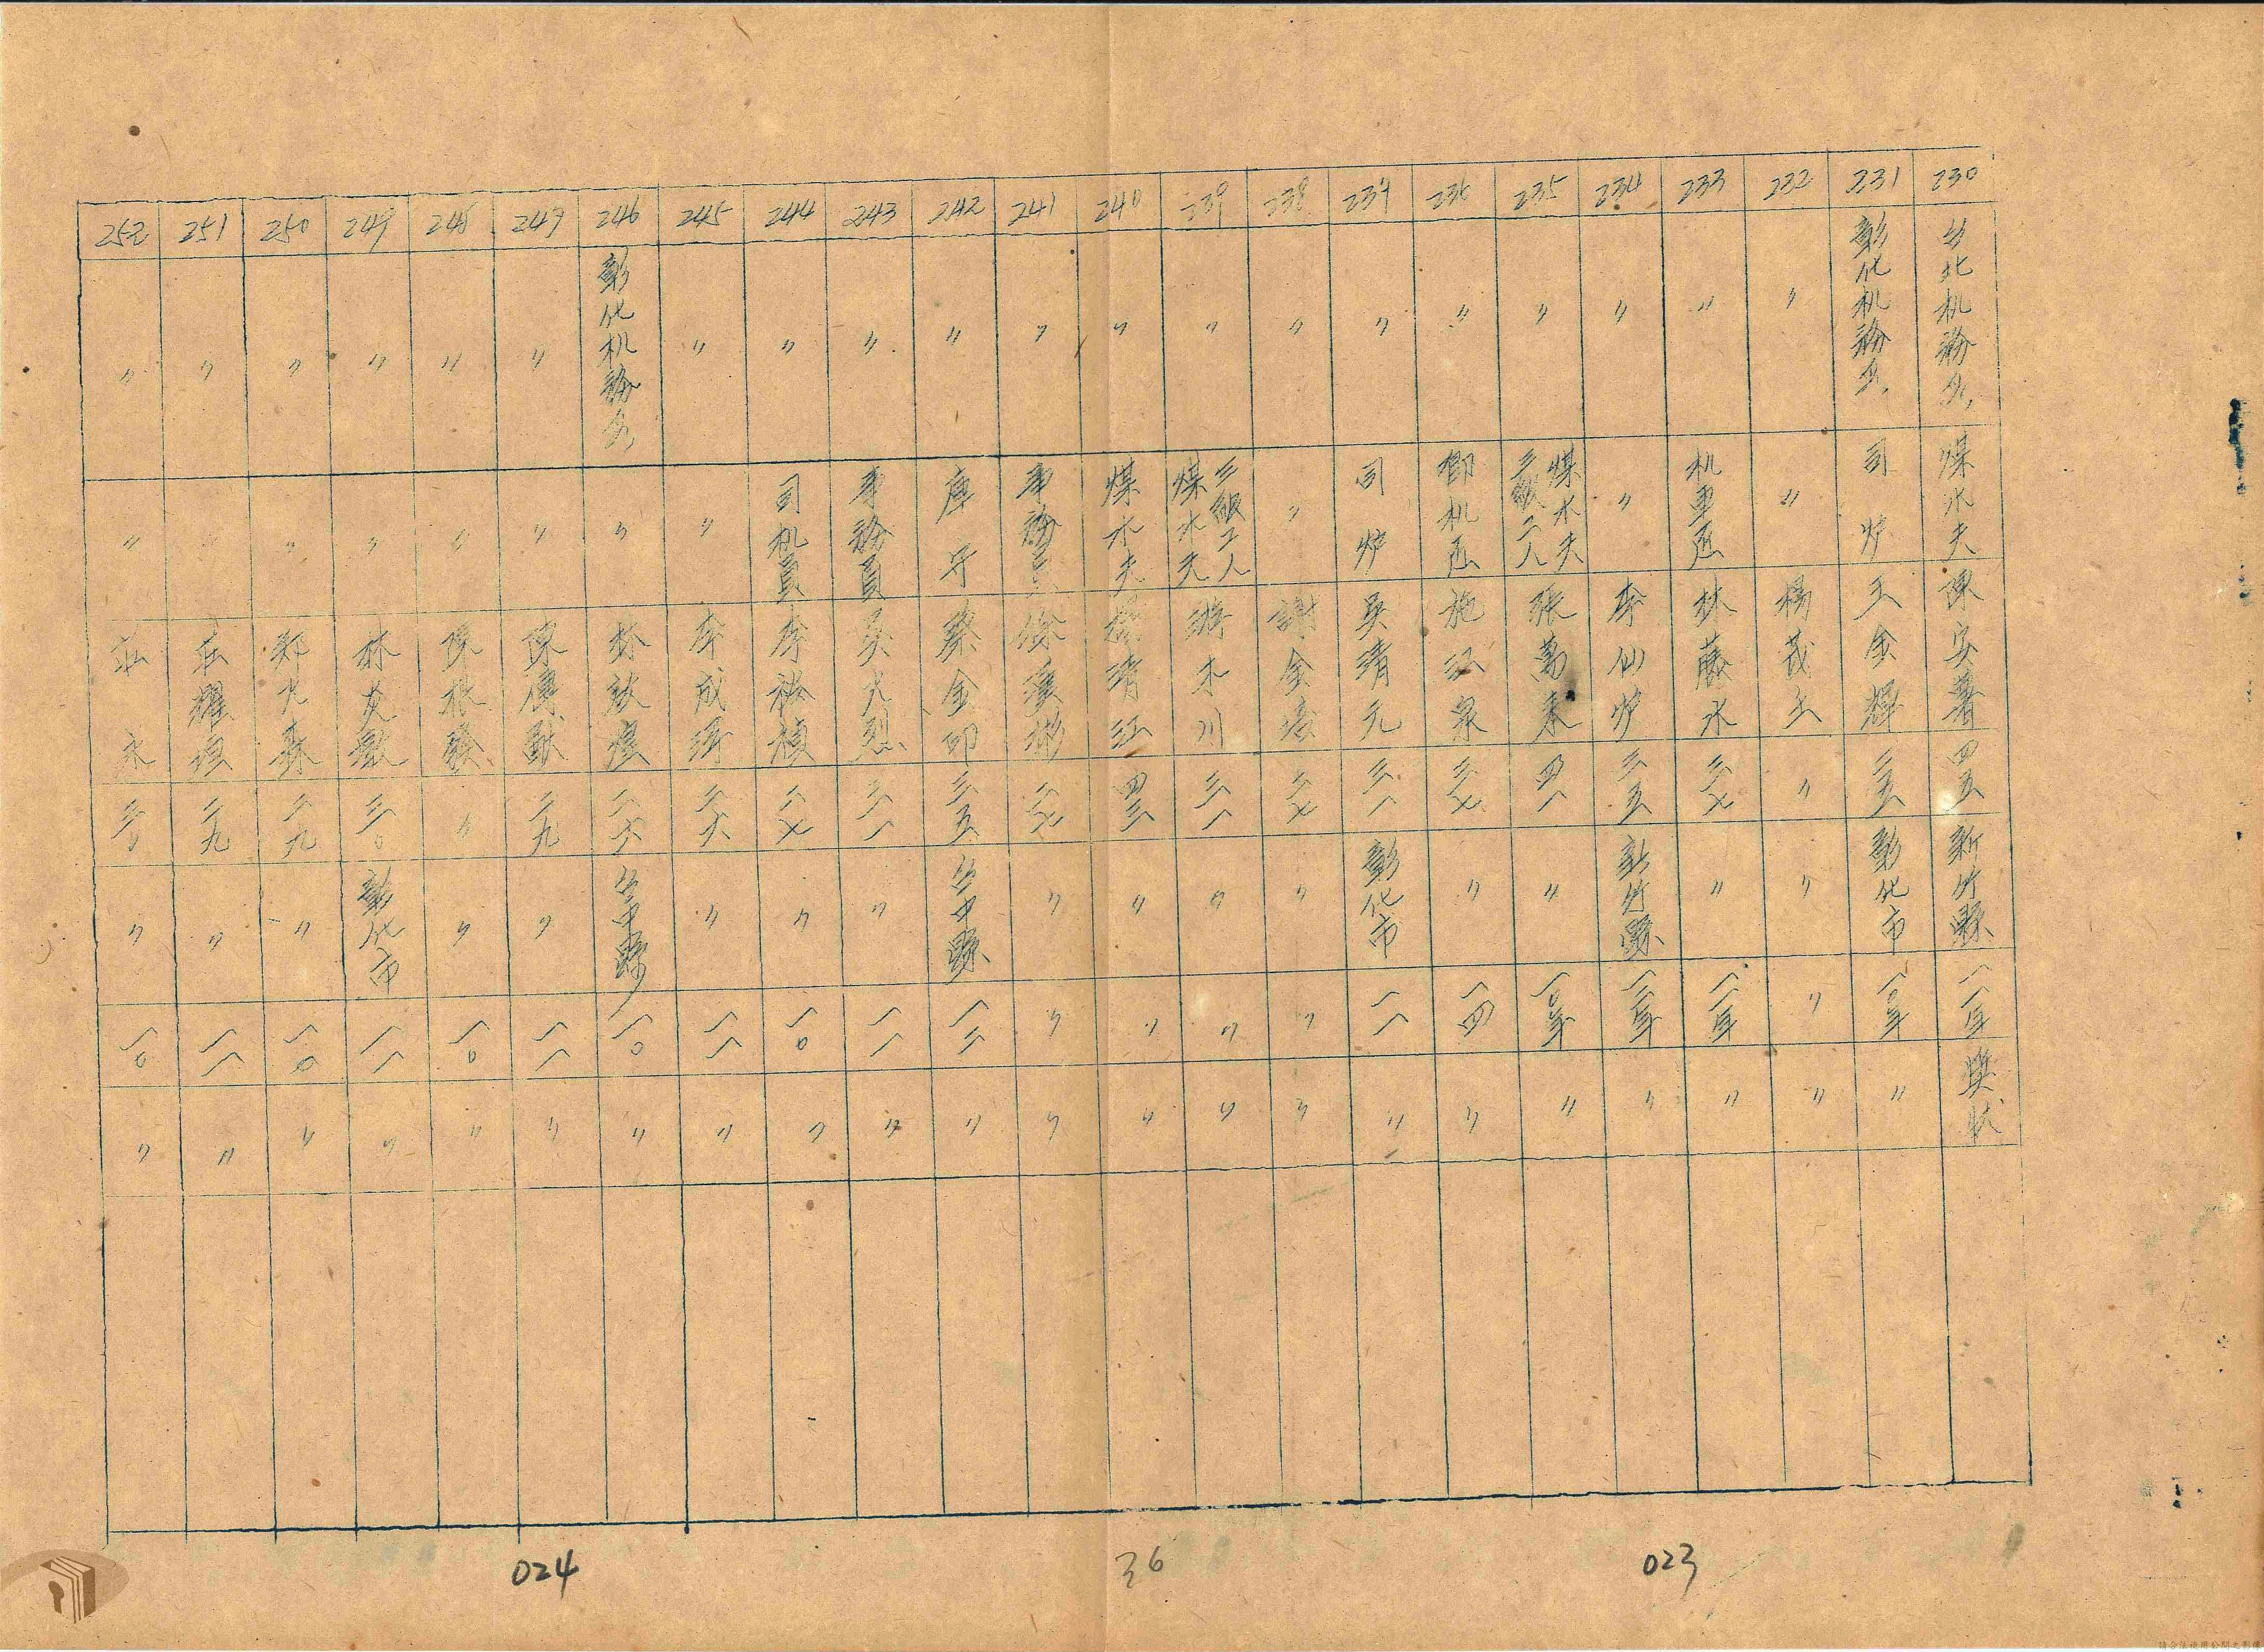 230 台北机務段 煤水夫 陳安着 四五 新竹縣 一一年 獎狀
231 彰化机務段 司炉 王金輝 三五 彰化市 一〇年 〃
232 〃 〃 楊茂土 〃 〃 〃 〃
233 〃 机車匠 林藤永 三七 〃 一一年 〃
234 〃 〃 李仙炉 三五 新竹縣 〃
235 〃 煤水夫 三級工人 張萬來 四一 〃 一〇年 〃
236 〃 机匠 施江泉 三七 〃 一四 〃
237 〃 司炉 吳清元 三一 彰化市 一一 〃
238 〃 〃 謝金 二七 〃 〃 〃
239 〃 三級工人 煤水夫 游木川 三一 〃 〃 〃
240 〃 煤水夫 清江 四三 〃 〃 〃
241 〃 事務員 徐漢彬 二七 〃 〃 〃
242 〃 庫守 蔡金印 三五 台中縣 一二 〃
243 〃 事務員 吳火烈 三一 〃 一一 〃
244 〃 司机員 李裕楨 二七 〃 一〇 〃
245 〃 〃 李成 二六 〃 一一 〃
246 彰化机務段 〃 林欽 二六 台中縣 一〇 〃
247 〃 〃 陳 二九 〃 一一 〃
248 〃 〃 陳根發 〃 〃 一〇 〃
249 〃 〃 林炎 三〇 彰化市 一一 〃
250 〃 〃 鄭火森 二九 〃 一〇 〃
251 〃 〃 莊耀垣 二九 〃 一一 〃
252 〃 〃 莊永 三〇 〃 一〇 〃
023
36
024